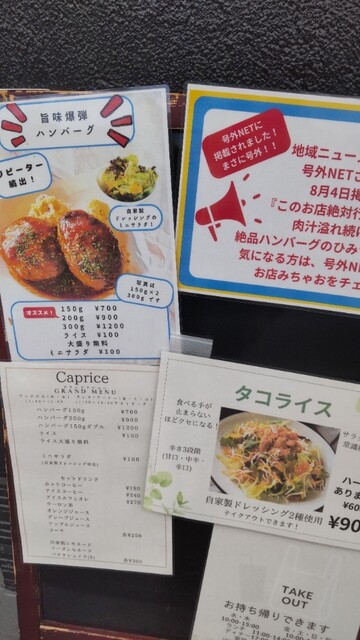 旨味爆弾
ハンバーグ
リピーター
続出！
自家製
ドレッシングの
ミニサラダ！
写真は
150g×2
300gです
オススメ！ 150g ¥700
200g ¥900
300g ¥1200
ライス ¥100
大盛り無料
ミニサラダ ¥100
号外NETに
掲載されました！
まさに号外！！
地域ニュー
号外NETさ
8月4日掲
『このお店絶対
肉汁溢れ続け
絶品ハンバーグのひみ
気になる方は、号外N
お店みちゃおをチェ
Caprice
GRAND MENU
ハンバーグ150g ¥700
ハンバーグ200g ¥900
ハンバーグ150gダブル ¥1200
ライス ¥100
ライス大盛り無料
ミニサラダ ¥100
セットドリンク
ホットコーヒー
アイスコーヒー
アイスカフェオレ
ウーロン茶
オレンジジュース
グレープジュース
アップルジュース
タコライス
食べる手が
止まらない
ほどクセになる！
辛さ3段階
(甘口・中辛・
辛口)
自家製ドレッシング2種使用
テイクアウトできます！
ハー
ありま
¥60
¥90
TAKE
OUT
お持ち帰りできます